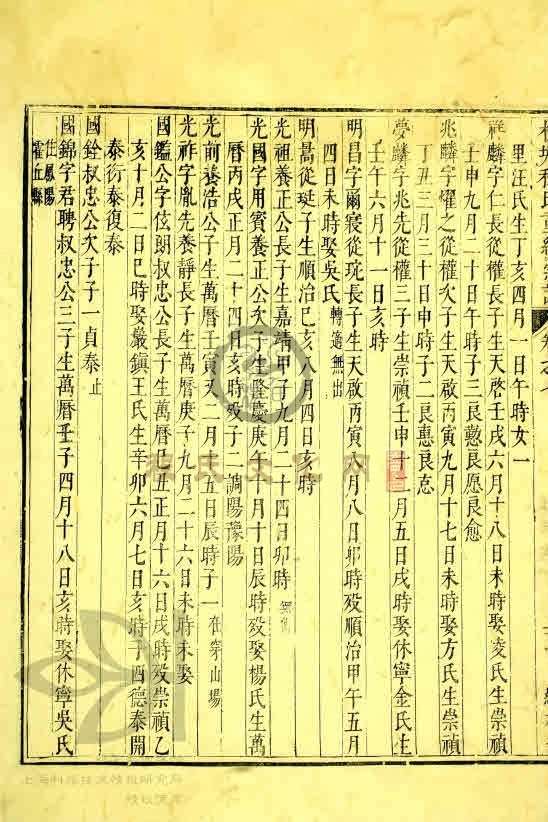 里汪氏生丁亥四月一日午時女一
祥麟字仁長從權長子生天啓壬戌六月十八日未時娶凌氏生崇禎
壬申九月二十日午時子三良懃良愿良愈
兆麟字燿之從權次子生天啟丙寅九月十七日未時娶方氏生崇禎
丁丑三月三十日申時子二良惪良志
夢麟字兆先從權三子生崇禎壬申十二月五日戌時娶休寧金氏生
壬午六月十一日亥時
明昌字爾寝從珫長子生天啟丙寅八月八日卯時歿順治甲午五月
四日未時娶吳氏 轉適無出
明嵩從珽子生順治己亥八月四日亥時
光祖養正公長子生嘉靖甲子九月二十四日卯時
光國字用賓養正公次子生隆慶庚午十月十日辰時歿娶楊氏生萬
曆丙戌正月二十四日亥時歿子二調陽豫陽
光前養浩公子生萬曆壬寅又二月十五日辰時子一 在穿山場
光祚字胤先養靜長子生萬曆庚子九月二十六日未時未娶
國鑑公字伭朗叔忠公長子生萬曆己丑正月十六日戌時歿崇禎乙
亥十月二日巳時娶嚴鎮王氏生辛卯六月七日亥時子四德泰開
泰衍泰復泰
國銓叔忠公次子子一貞泰 止
國錦字君聘叔忠公三子生萬曆壬子四月十八日亥時娶休寧吳氏
住鳳陽
霍丘縣